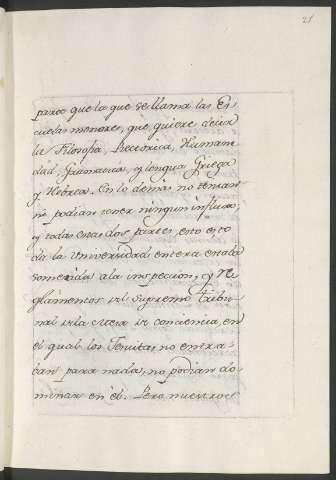 21
paroo que lo que se llama las Es
cuelas menores, que quiere decir
la Filosofia, Retorica, Human
dad, Gramatica, y lengua Griega
y Hebrea. En lo demas no tenian
ni podian tener ningun influxo;
y todas estas dos partes, esto es to
da la Universidad entera estaba
sometida ala inspeccion, y re
glamentos del Supremo tribu
nal dela Mesa de conciencia, en
el qual los Jesuitas no entra
ban para nada, no podian do
minar en el. Pero nuestros